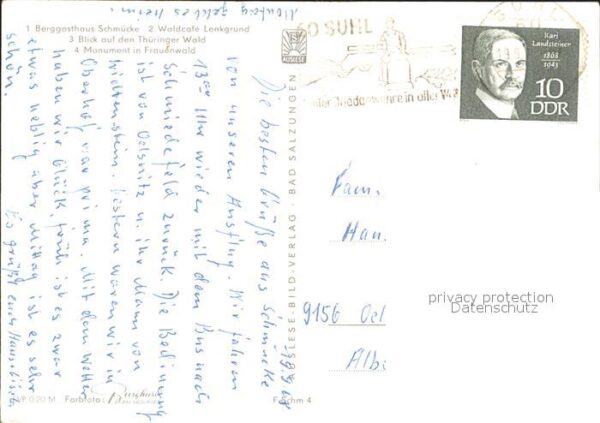 1 Berggasthaus Schmücke 2 Waldcafé Lenkgrund
3 Blick auf den Thüringer Wald
4 Monument in Frauenwald
Die besten Grüße aus Schmücke
von unserem Ausflug. Wir fahren
13 00 Uhr wieder mit dem Bus nach
Schmiedefeld zurück. Die Bedienung
ist von Oelsnitz u. ihr Mann von
Gestern waren wir in
Oberhof, war prima. Mit dem Wetter
haben wir Glück, früh ist es zwar
etwas neblig aber Mittag ist es sehr
schön.
Es grüßt euch
Montag geht es heim!
VP 0.20 M Farbfoto:
AUSLESE
AUSLESE-BILD-VERLAG · BAD SALZUNGEN
60 SUHL
in aller Welt
SUHL
60
Karl
Landsteiner
1868
1943
10
DDR
Fam.
Han.
9156 Oel
Alb
privacy protection
Datenschutz